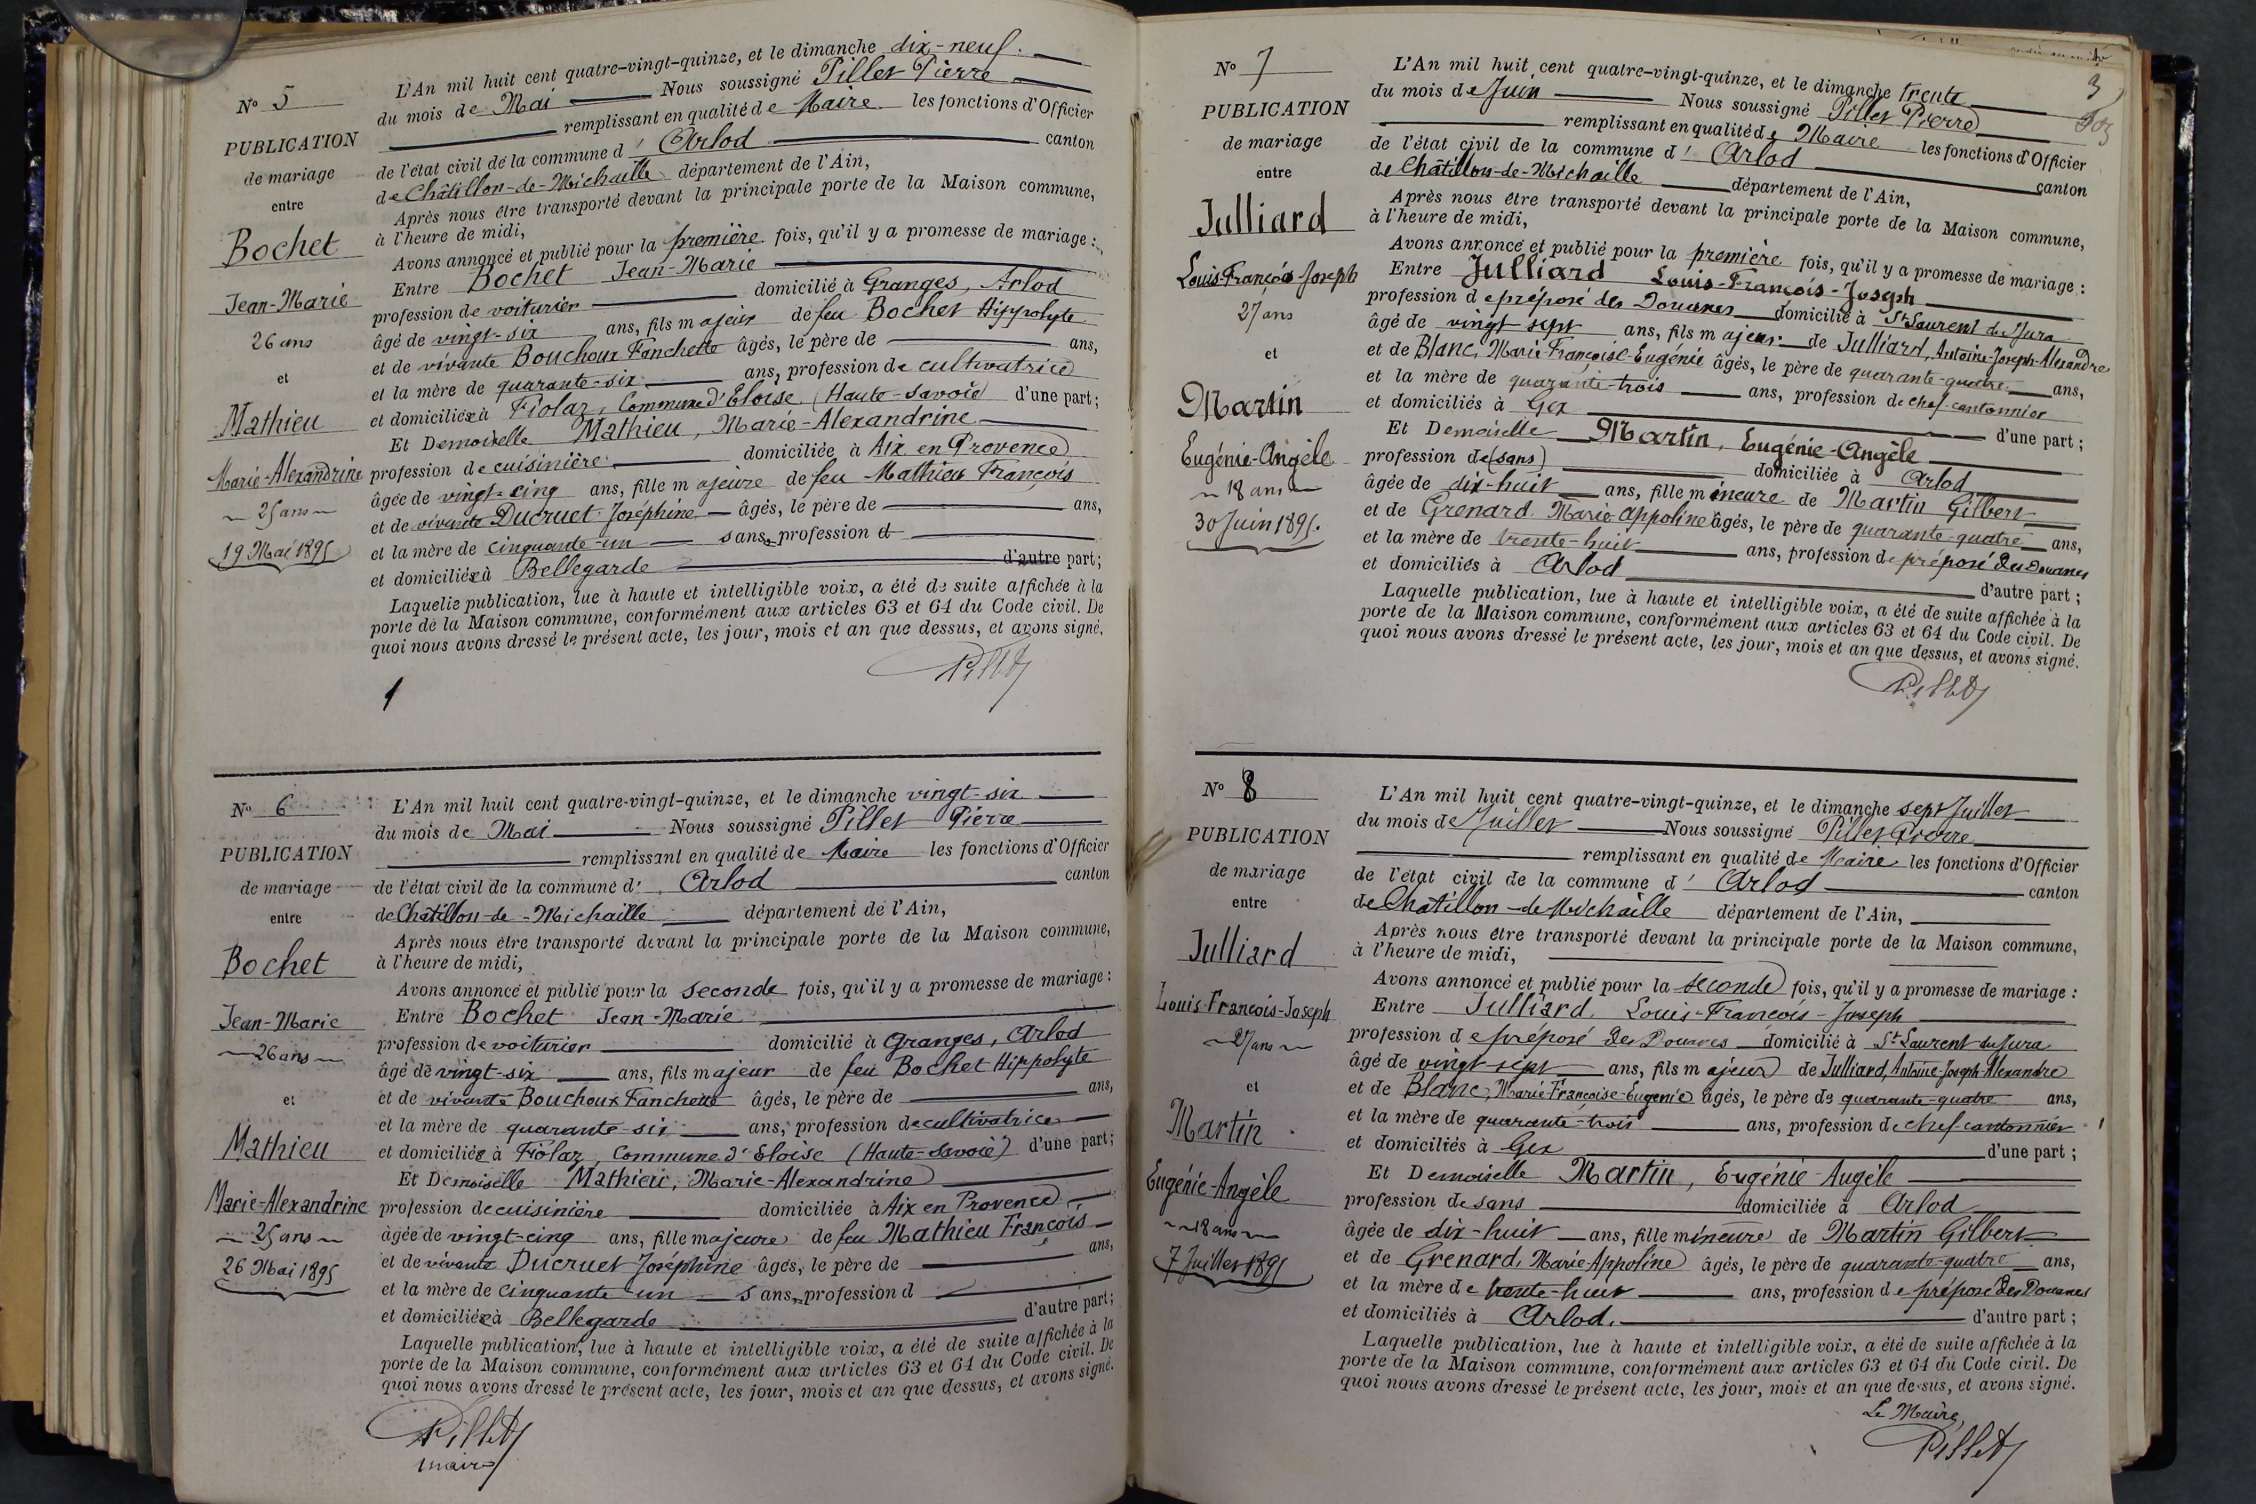 N° 5
PUBLICATION
de mariage
entre
Bochet
Jean-Marie
26 ans
et
Mathieu
Marie-Alexandrine
25 ans
19 Mai 1895
L'An mil huit cent quatre-vingt-quinze, et le dimanche dix-neuf
du mois de Mai Nous soussigné Pillet Pierre
remplissant en qualité de Maire les fonctions d'Officier
de l'état civil de la commune d' Arlod canton
de Châtillon-de-Michaille département de l'Ain,
Après nous être transporté devant la principale porte de la Maison commune,
à l'heure de midi,
Avons annoncé et publié pour la première fois, qu'il y a promesse de mariage :
Entre Bochet Jean-Marie
profession de voiturier domicilié à Granges, Arlod
âgé de vingt-six ans, fils majeur de feu Bochet Hippolyte
et de vivante Bouchoux Fanchette âgés, le père de ans,
et la mère de quarante-six ans, profession de cultivatrice
et domiciliée à Fiolaz, Commune d'Eloise (Haute-Savoie) d'une part ;
Et Demoiselle Mathieu, Marie-Alexandrine
profession de cuisinière domiciliée à Aix en Provence
âgée de vingt-cinq ans, fille majeure de feu Mathieu François
et de vivante Ducruet Joséphine âgés, le père de ans,
et la mère de cinquante-un sans, profession d
et domiciliée à Bellegarde d'autre part ;
Laquelle publication, lue à haute et intelligible voix, a été de suite affichée à la
porte de la Maison commune, conformément aux articles 63 et 64 du Code civil. De
quoi nous avons dressé le présent acte, les jour, mois et an que dessus, et avons signé.
Pillet
1
N° 6
PUBLICATION
de mariage
entre
Bochet
Jean-Marie
26 ans
et
Mathieu
Marie-Alexandrine
25 ans
26 Mai 1895
L'An mil huit cent quatre-vingt-quinze, et le dimanche vingt-six
du mois de Mai Nous soussigné Pillet Pierre
remplissant en qualité de Maire les fonctions d'Officier
de l'état civil de la commune d' Arlod canton
de Châtillon-de-Michaille département de l'Ain,
Après nous être transporté devant la principale porte de la Maison commune,
à l'heure de midi,
Avons annoncé et publié pour la seconde fois, qu'il y a promesse de mariage :
Entre Bochet Jean-Marie
profession de voiturier domicilié à Granges, Arlod
âgé de vingt-six ans, fils majeur de feu Bochet Hippolyte
et de vivante Bouchoux Fanchette âgés, le père de ans,
et la mère de quarante-six ans, profession de cultivatrice
et domiciliée à Fiolaz, Commune d'Eloise (Haute-Savoie) d'une part ;
Et Demoiselle Mathieu, Marie-Alexandrine
profession de cuisinière domiciliée à Aix en Provence
âgée de vingt-cinq ans, fille majeure de feu Mathieu François
et de vivante Ducruet Joséphine âgés, le père de ans,
et la mère de cinquante un sans, profession d
et domiciliée à Bellegarde d'autre part ;
Laquelle publication, lue à haute et intelligible voix, a été de suite affichée à la
porte de la Maison commune, conformément aux articles 63 et 64 du Code civil. De
quoi nous avons dressé le présent acte, les jour, mois et an que dessus, et avons signé.
Pillet
maire
3
N° 7
PUBLICATION
de mariage
entre
Julliard
Louis-François-Joseph
27 ans
et
Martin
Eugénie-Angèle
18 ans
30 Juin 1895.
L'An mil huit cent quatre-vingt-quinze, et le dimanche trente
du mois de Juin Nous soussigné Pillet Pierre
remplissant en qualité de Maire les fonctions d'Officier
de l'état civil de la commune d' Arlod canton
de Châtillon-de-Michaille département de l'Ain,
Après nous être transporté devant la principale porte de la Maison commune,
à l'heure de midi,
Avons annoncé et publié pour la première fois, qu'il y a promesse de mariage :
Entre Julliard Louis-François-Joseph
profession de préposé des Douanes domicilié à St Laurent du Jura
âgé de vingt sept ans, fils majeur de Julliard, Antoine-Joseph-Alexandre
et de Blanc, Marie Françoise-Eugénie âgés, le père de quarante-quatre ans,
et la mère de quarante-trois ans, profession de chef cantonnier
et domiciliés à Gex d'une part ;
Et Demoiselle Martin, Eugénie-Angèle
profession de (sans) domiciliée à Arlod
âgée de dix-huit ans, fille mineure de Martin Gilbert
et de Grenard Marie Appoline âgés, le père de quarante-quatre ans,
et la mère de trente-huit ans, profession de préposé des Douanes
et domiciliés à Arlod d'autre part ;
Laquelle publication, lue à haute et intelligible voix, a été de suite affichée à la
porte de la Maison commune, conformément aux articles 63 et 64 du Code civil. De
quoi nous avons dressé le présent acte, les jour, mois et an que dessus, et avons signé.
Pillet
N° 8
PUBLICATION
de mariage
entre
Julliard
Louis-François-Joseph
27 ans
et
Martin
Eugénie-Angèle
18 ans
7 Juillet 1895
L'An mil huit cent quatre-vingt-quinze, et le dimanche sept Juillet
du mois de Juillet Nous soussigné Pillet Pierre
remplissant en qualité de Maire les fonctions d'Officier
de l'état civil de la commune d' Arlod canton
de Châtillon-de-Michaille département de l'Ain,
Après nous être transporté devant la principale porte de la Maison commune,
à l'heure de midi,
Avons annoncé et publié pour la seconde fois, qu'il y a promesse de mariage :
Entre Julliard, Louis-François-Joseph
profession de préposé des Douanes domicilié à St Laurent du Jura
âgé de vingt-sept ans, fils majeur de Julliard, Antoine-Joseph-Alexandre
et de Blanc, Marie Françoise-Eugénie âgés, le père de quarante-quatre ans,
et la mère de quarante-trois ans, profession de chef cantonnier
et domiciliés à Gex d'une part ;
Et Demoiselle Martin, Eugénie-Angèle
profession de sans domiciliée à Arlod
âgée de dix-huit ans, fille mineure de Martin Gilbert
et de Grenard, Marie-Appoline âgés, le père de quarante-quatre ans,
et la mère de trente-huit ans, profession de préposé des Douanes
et domiciliés à Arlod. d'autre part ;
Laquelle publication, lue à haute et intelligible voix, a été de suite affichée à la
porte de la Maison commune, conformément aux articles 63 et 64 du Code civil. De
quoi nous avons dressé le présent acte, les jour, mois et an que dessus, et avons signé.
Le Maire,
Pillet